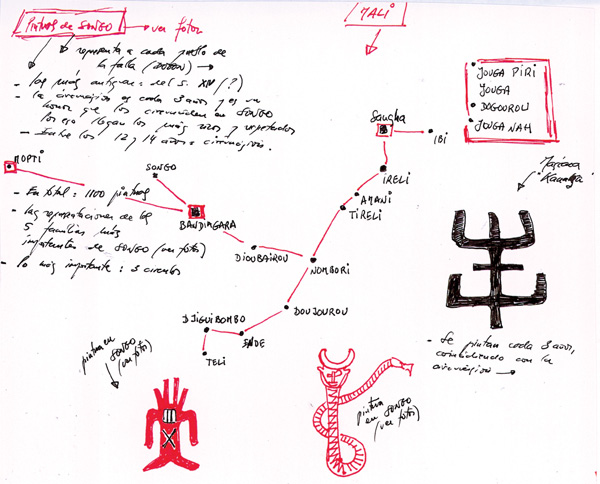 Pinturas de SONGO → ver fotos
representa a cada pueblo de
la falla (DOGON) →
- las más antiguas: del S. XVI (?)
- la circuncisión es cada 3 años y es un
honor que los circunciden en SONGO
los que llegan los más ricos y respetados
- Entre los 12 y 14 años = circuncisión.
MALI
JOUGA PIRI
JOUGA
DOGOUROU
JOUGA NAH
Sangha
IBI
IRELI
AMANI
TIRELI
MOPTI
SONGO
BANDIAGARA
DIOUBAIROU
NOMBORI
DOUJOUROU
DJIGUIBOMBO
ENDE
TELI
- En total: 1100 pinturas
- las representaciones de las
5 familias más
importantes de SONGO (ver fotos)
- lo más importante: 3 círculos
Máscara
Kanaga
- Se pintan cada 3 años,
coincidiendo con la
circuncisión →
pintura en
SONGO
(ver fotos)
pintura
en SONGO
(ver fotos)